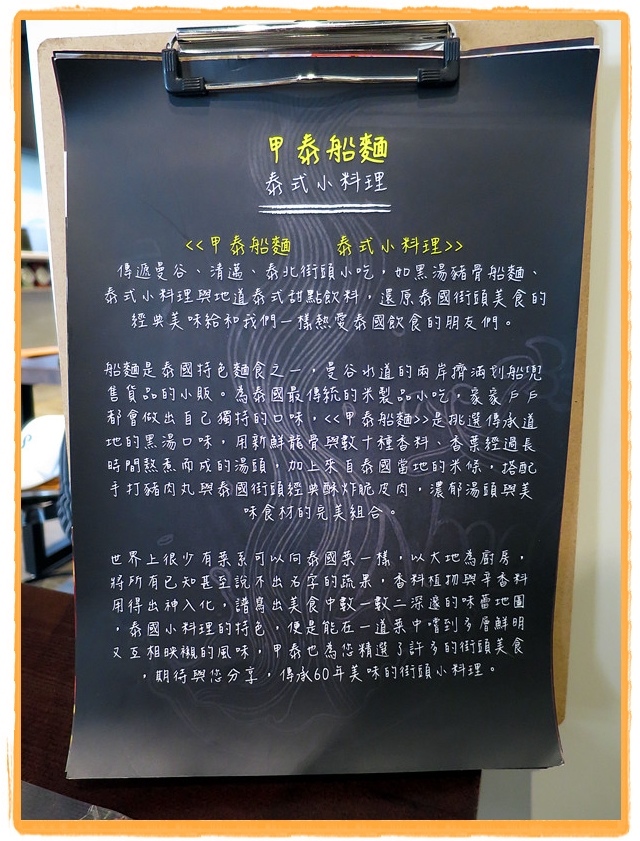 甲泰船麵
泰式小料理
<<甲泰船麵 泰式小料理>>
傳遞曼谷、清邁、泰北街頭小吃，如黑湯豬骨船麵、
泰式小料理與地道泰式甜點飲料，還原泰國街頭美食的
經典美味給和我們一樣熱愛泰國飲食的朋友們。
船麵是泰國特色麵食之一，曼谷水道的兩岸擠滿划船兜
售貨品的小販。為泰國最傳統的米製品小吃，家家戶戶
都會做出自己獨特的口味，<<甲泰船麵>>是挑選傳承道
地的黑湯口味，用新鮮龍骨與數十種香料、香葉經過長
時間熬煮而成的湯頭，加上來自泰國當地的米條，搭配
手打豬肉丸與泰國街頭經典酥炸脆皮肉，濃郁湯頭與美
味食材的完美組合。
世界上很少有菜系可以向泰國菜一樣，以大地為廚房，
將所有已知甚至說不出名字的蔬果，香料植物與辛香料
用得出神入化，譜寫出美食中數一數二深邃的味蕾地圖
，泰國小料理的特色，便是能在一道菜中嚐到多層鮮明
又互相映襯的風味，甲泰也為您精選了許多的街頭美食
，期待與您分享，傳承60年美味的街頭小料理。